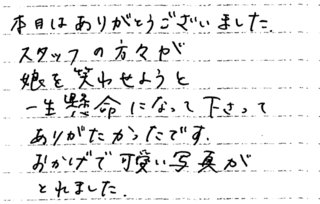 本日はありがとうございました.
スタッフの方々が
娘を笑わせようと
一生懸命になって下さって
ありがたかったです.
おかげで可愛い写真が
とれました.